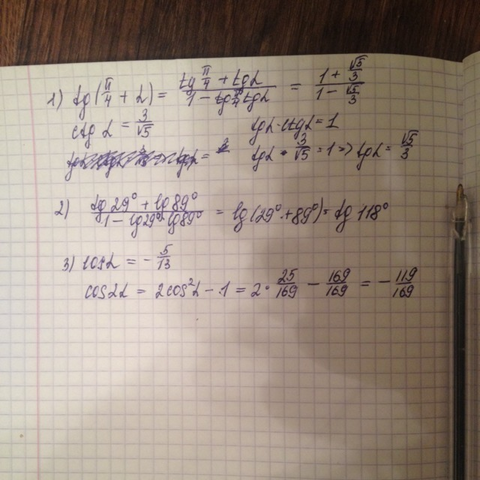 1) tg(π/4 + α) = (tg π/4 + tgα)/(1 - tg π/4 tgα) = (1 + √5/3)/(1 - √5/3)
ctgα = 3/√5 tgα·ctgα = 1
tgα · 3/√5 = 1 => tgα = √5/3
2) (tg29° + tg89°)/(1 - tg29°·tg89°) = tg(29° + 89°) = tg 118°
3) cosα = - 5/13
cos2α = 2cos²α - 1 = 2· 25/169 - 169/169 = - 119/169